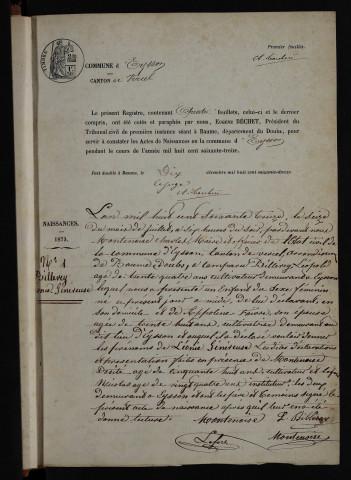 Premier feuillet.
COMMUNE d'Eysson
CANTON de Vercel
Le présent Registre, contenant quatre feuillets, celui-ci et le dernier
compris, ont été cotés et paraphés par nous, Eugène BÉCHET, Président du
Tribunal civil de première instance séant à Baume, département du Doubs, pour
servir à constater les Actes de Naissances en la commune d'Eysson
pendant le cours de l'année mil huit cent soixante-treize.
Fait double à Baume, le Dix décembre mil huit cent soixante-douze
NAISSANCES.
1873.
N° 1
Billerey
L'an mil huit cent soixante treize, le seize
du mois de juillet, à sept heures du soir, pardevant nous
Montenoise Charles, Maire et officier de l'état civil de
la commune d'Eysson, canton de Vercel, arrondissement
de Baume (Doubs), a comparu Billerey Léopold
âgé de trente quatre ans cultivateur demeurant à Eysson
lequel nous a présenté un Enfant du sexe féminin
né en présent jour à midi, de lui déclarant, en
son domicile et de Appoline son épouse
âgée de trente huit ans, cultivatrice demeurant au
dit lieu d'Eysson et auquel il a déclaré vouloir donner
les prénoms de Les dites déclarations
et présentation faites en présence de Montenoise
Désiré âgé de cinquante huit ans, cultivateur et
Nicolas âgé de vingt quatre ans instituteur, les deux
demeurant à Eysson et ont les père et témoins signé le
présent acte de naissance après qu'il leur en a été
donné lecture. Montenoise L. Billerey
Montenoise